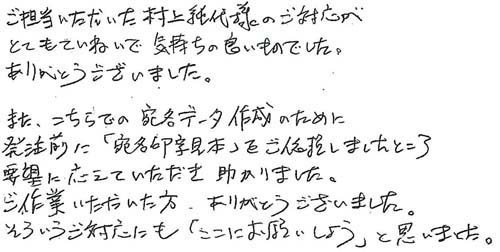 ご担当いただいた村上純代様のご対応が
とてもていねいで気持ちの良いものでした。
ありがとうございました。
また、こちらでの宛名データ作成のために
発注前に「宛名印字見本」をご依頼しましたところ
要望に応えていただき助かりました。
ご作業いただいた方、ありがとうございました。
そういうご対応にも「ここにお願いしよう」と思いました。